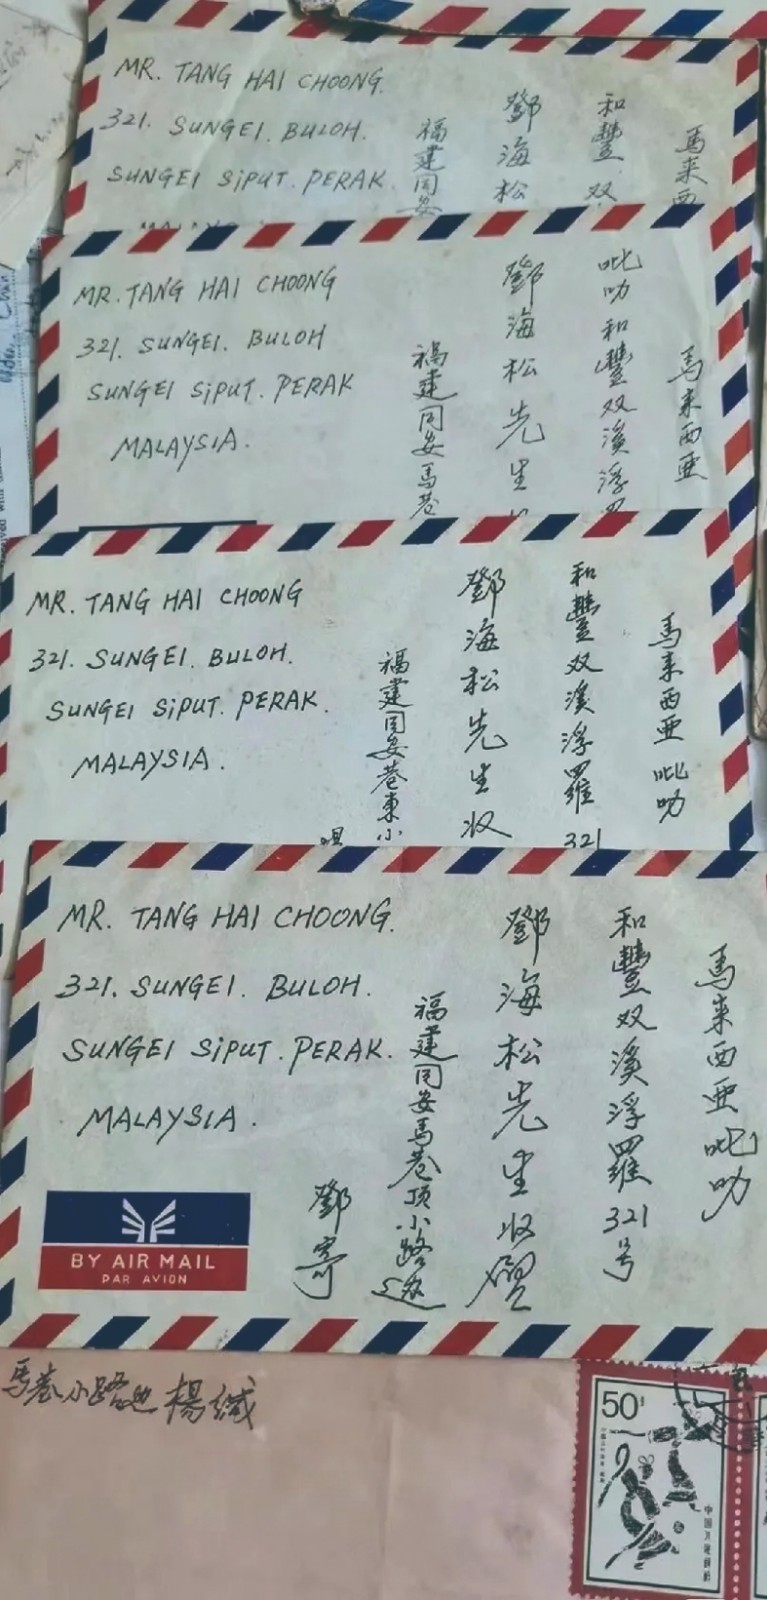 MR. TANG HAI CHOONG.
321. SUNGEI. BULOH.
SUNGEI SiPUT. PERAK
馬来西
和豐双
鄧海松
福建同安
MR. TANG HAI CHOONG
321. SUNGEI. BULOH
SUNGEI SiPUT. PERAK
MALAYSIA.
馬来西亜
吡叻和豐双溪浮
鄧海松先生
福建同安馬巷
MR. TANG HAI CHOONG
321. SUNGEI. BULOH.
SUNGEI SiPUT. PERAK.
MALAYSIA.
馬来西亜吡叻
和豐双溪浮羅321
鄧海松先生收
福建同安巷東小
MR. TANG HAI CHOONG.
321. SUNGEI. BULOH.
SUNGEI SiPUT. PERAK.
MALAYSIA.
馬来西亜吡叻
和豐双溪浮羅321号
鄧海松先生收
福建同安馬巷頂小路边
鄧寄
BY AIR MAIL
PAR AVION
馬巷小路边楊緘
50
中国人民邮政